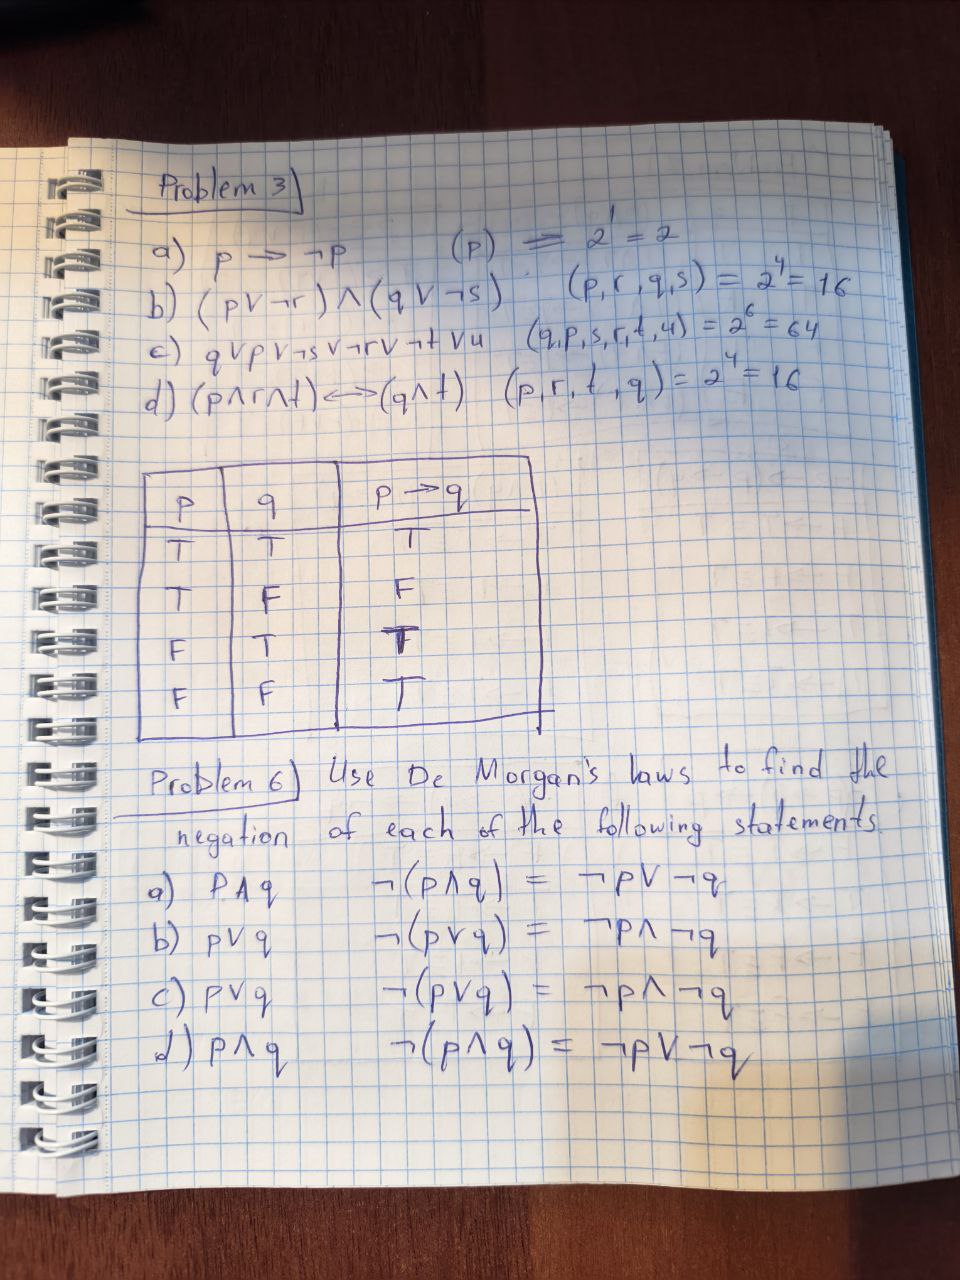 Problem 3)
a) p → ¬p (p) = 2¹ = 2
b) (p∨¬r)∧(q∨¬s) (p,r,q,s) = 2⁴ = 16
c) q∨p∨¬s∨¬r∨¬t∨u (q,p,s,r,t,u) = 2⁶ = 64
d) (p∧r∧t)↔(q∧t) (p,r,t,q) = 2⁴ = 16
p q p → q
T T T
T F F
F T T
F F T
Problem 6) Use De Morgan's laws to find the
negation of each of the following statements
a) p∧q ¬(p∧q) = ¬p∨¬q
b) p∨q ¬(p∨q) = ¬p∧¬q
c) p∨q ¬(p∨q) = ¬p∧¬q
d) p∧q ¬(p∧q) = ¬p∨¬q